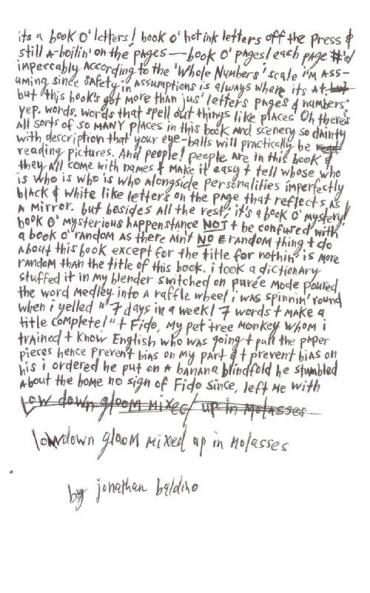 its a book o' letters! book o' hot ink letters off the press &
still a-boilin' on the pages — book o' pages! each page #'d
impeccably according to the 'Whole Numbers' scale i'm ass-
uming, since safety in assumptions is always where its at.
but this book's got more than jus' letters pages & numbers,
yep. words. words that spell out things like places. Oh there's
all sorts of so MANY places in this book and scenery so dainty
with description that your eye-balls will practically be
reading pictures. And people! people are in this book &
they all come with names t make it easy t tell whose who
is who is who is who alongside personalities imperfectly
black & white like letters on the page that reflects as/
a mirror. but besides all the rest, it's a book o' mystery!
book o' mysterious happenstance NOT t be confused with
a book o' random as there ain't NO E random thing t do
about this book except for the title for nothin' is more
random than the title of this book. i took a dictionary
stuffed it in my blender switched on purée mode poured
the word medley into a raffle wheel i was spinnin' round
when i yelled "7 days in a week! 7 words t make a
title complete!" t Fido, my pet tree monkey whom i
trained t know English who was going t pull the paper
pieces hence prevent bias on my part & t prevent bias on
his i ordered he put on a banana blindfold he stumbled
about the home no sign of Fido since, left me with
low down gloom mixed up in molasses
lowdown gloom mixed up in molasses
by jonathan baldino